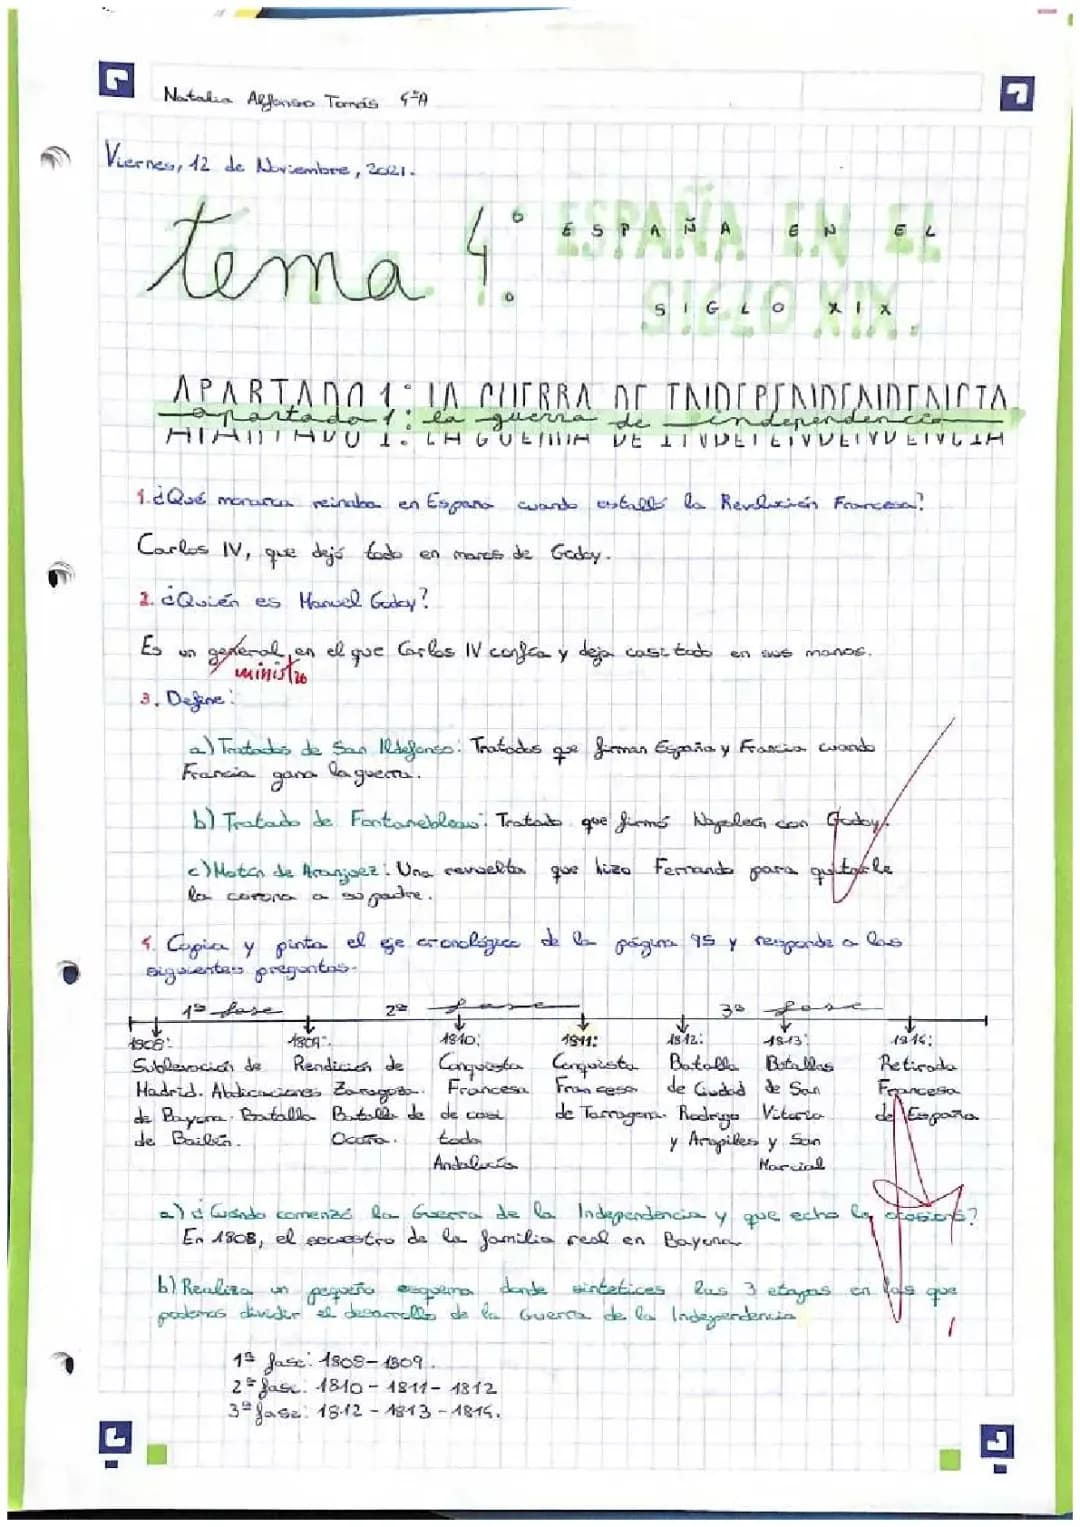 Natalia Alfonso Tomás 4ºA
Viernes, 12 de Noviembre, 2021.
tema 4: ESPAÑA EN EL
SIGLO XIX.
APARTADO 1: LA GUERRA DE INDEPENDENDENCIA
apartado 1: la guerra de independencia
1. ¿Qué monarca reinaba en España cuando estalló la Revolución Francesa?
Carlos IV, que dejó todo en manos de Godoy.
2. ¿Quién es Manuel Godoy?
Es un general, en el que Carlos IV confía y deja casi todo en sus manos.
ministro
3. Define:
a) Tratados de San Ildefonso: Tratados que firman España y Francia cuando
Francia gana la guerra.
b) Tratado de Fontanebleau: Tratado que firmó Napoleón con Godoy.
c) Motín de Aranjuez: Una revuelta que hizo Fernando para quitarle
la corona a su padre.
4. Copia y pinta el eje cronológico de la página 95 y responde a las
siguientes preguntas.
1ª fase 2ª fase 3ª fase
1808: 1809: 1810: 1811: 1812: 1813: 1814:
Sublevación de Rendición de Conquista Conquista Batalla Batallas Retirada
Madrid. Abdicaciones Zaragoza. Francesa Francesa de Ciudad de San Francesa
de Bayona. Batalla Batalla de de casi de Tarragona. Rodrigo Vitoria de España
de Bailén. Ocaña. toda y Arapiles y San
Andalucía Marcial
a) ¿Cuándo comenzó la Guerra de la Independencia y que echo la ocasionó?
En 1808, el secuestro de la familia real en Bayona.
b) Realiza un pequeño esquema donde sintetices las 3 etapas en las que
podemos dividir el desarrollo de la Guerra de la Independencia
1ª fase: 1808-1809.
2ª fase: 1810-1811-1812
3ª fase: 1812-1813-1814.